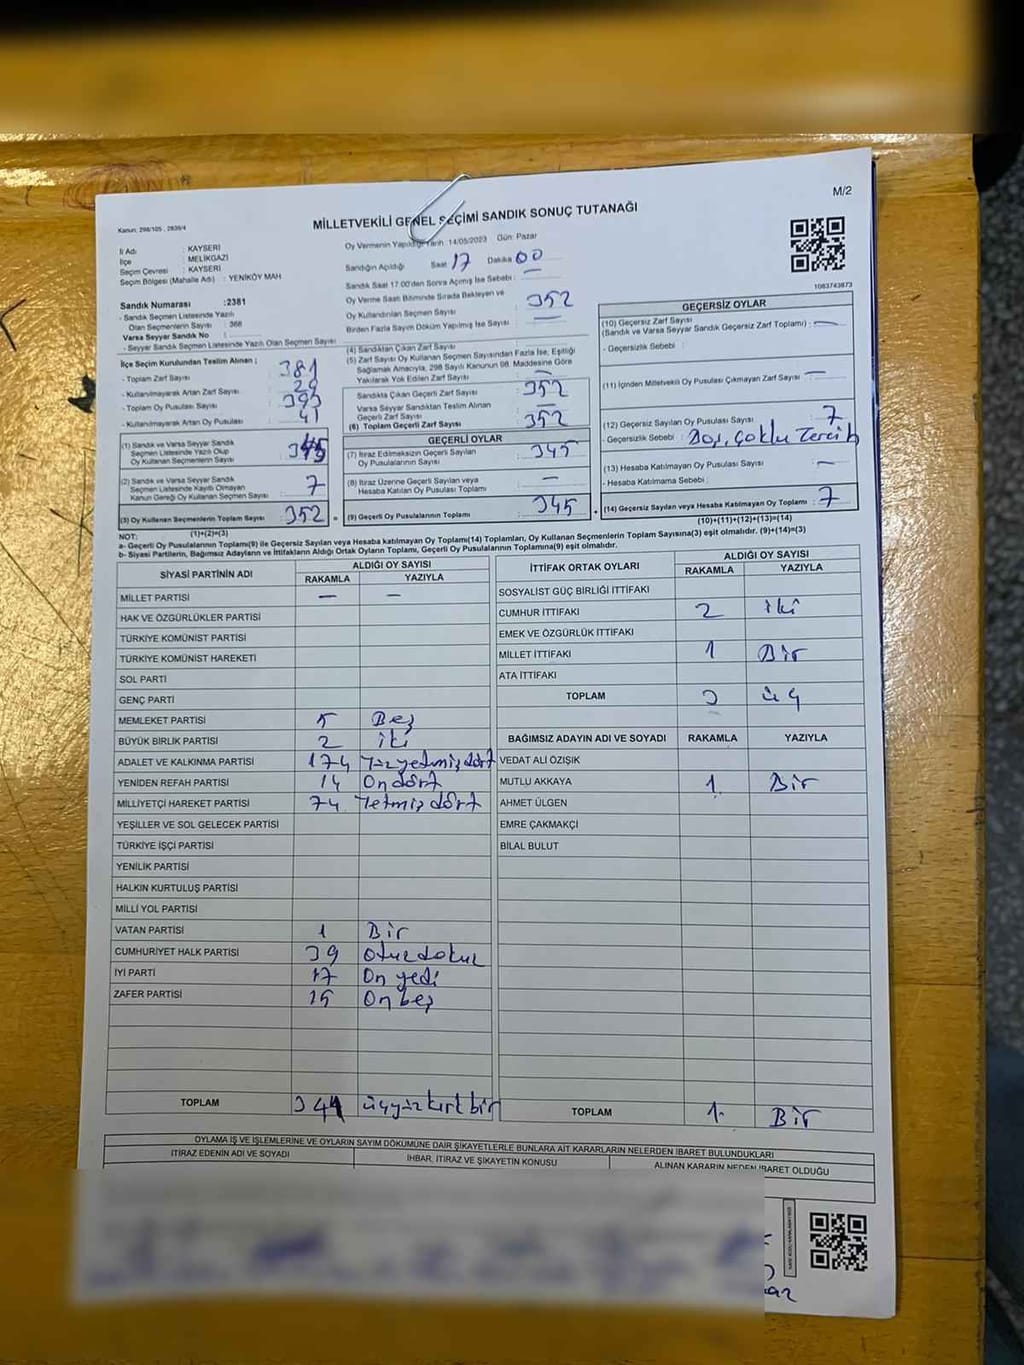 M/2
Kanun: 298/105 , 2839/4
MİLLETVEKİLİ GENEL SEÇİMİ SANDIK SONUÇ TUTANAĞI
İl Adı : KAYSERİ
İlçe : MELİKGAZİ
Seçim Çevresi : KAYSERİ
Seçim Bölgesi (Mahalle Adı) : YENİKÖY MAH
Sandık Numarası :2381
- Sandık Seçmen Listesinde Yazılı
Olan Seçmenlerin Sayısı : 368
Varsa Seyyar Sandık No :
- Seyyar Sandık Seçmen Listesinde Yazılı Olan Seçmen Sayısı :
Oy Vermenin Yapıldığı Tarih :14/05/2023 Gün: Pazar
Sandığın Açıldığı Saat 17 Dakika 00
Sandık Saat 17.00'den Sonra Açılmış İse Sebebi : —
Oy Verme Saati Bitiminde Sırada Bekleyen ve
Oy Kullandırılan Seçmen Sayısı : 352
Birden Fazla Sayım Döküm Yapılmış İse Sayısı : —
1083743873
İlçe Seçim Kurulundan Teslim Alınan ;
- Toplam Zarf Sayısı : 381
- Kullanılmayarak Artan Zarf Sayısı : 29
- Toplam Oy Pusulası Sayısı : 393
- Kullanılmayarak Artan Oy Pusulası : 41
(1) Sandık ve Varsa Seyyar Sandık
Seçmen Listesinde Yazılı Olup
Oy Kullanan Seçmenlerin Sayısı : 345
(2) Sandık ve Varsa Seyyar Sandık
Seçmen Listesinde Kayıtlı Olmayan
Kanun Gereği Oy Kullanan Seçmen Sayısı : 7
(3) Oy Kullanan Seçmenlerin Toplam Sayısı : 352
(1)+(2)=(3)
(4) Sandıktan Çıkan Zarf Sayısı :
(5) Zarf Sayısı Oy Kullanan Seçmen Sayısından Fazla İse, Eşitliği
Sağlamak Amacıyla, 298 Sayılı Kanunun 98. Maddesine Göre
Yakılarak Yok Edilen Zarf Sayısı : —
Sandıkta Çıkan Geçerli Zarf Sayısı : 352
Varsa Seyyar Sandıktan Teslim Alınan
Geçerli Zarf Sayısı :
(6) Toplam Geçerli Zarf Sayısı : 352
GEÇERLİ OYLAR
(7) İtiraz Edilmeksizin Geçerli Sayılan
Oy Pusulalarının Sayısı : 345
(8) İtiraz Üzerine Geçerli Sayılan veya
Hesaba Katılan Oy Pusulası Toplamı : —
(9) Geçerli Oy Pusulalarının Toplamı : 345
GEÇERSİZ OYLAR
(10) Geçersiz Zarf Sayısı
(Sandık ve Varsa Seyyar Sandık Geçersiz Zarf Toplamı) : —
- Geçersizlik Sebebi :
(11) İçinden Milletvekili Oy Pusulası Çıkmayan Zarf Sayısı : —
(12) Geçersiz Sayılan Oy Pusulası Sayısı : 7
- Geçersizlik Sebebi : Boş, Çoklu Tercih
(13) Hesaba Katılmayan Oy Pusulası Sayısı : —
- Hesaba Katılmama Sebebi :
(14) Geçersiz Sayılan veya Hesaba Katılmayan Oy Toplamı : 7
(10)+(11)+(12)+(13)=(14)
NOT:
a- Geçerli Oy Pusulalarının Toplamı(9) ile Geçersiz Sayılan veya Hesaba Katılmayan Oy Toplamı(14) Toplamları, Oy Kullanan Seçmenlerin Toplam Sayısına(3) eşit olmalıdır. (9)+(14)=(3)
b- Siyasi Partilerin, Bağımsız Adayların ve İttifakların Aldığı Ortak Oyların Toplamı, Geçerli Oy Pusulalarının Toplamına(9) eşit olmalıdır.
SİYASİ PARTİNİN ADI ALDIĞI OY SAYISI
RAKAMLA YAZIYLA
MİLLET PARTİSİ — —
HAK VE ÖZGÜRLÜKLER PARTİSİ
TÜRKİYE KOMÜNİST PARTİSİ
TÜRKİYE KOMÜNİST HAREKETİ
SOL PARTİ
GENÇ PARTİ
MEMLEKET PARTİSİ 5 Beş
BÜYÜK BİRLİK PARTİSİ 2 iki
ADALET VE KALKINMA PARTİSİ 174 Yüzyetmişdört
YENİDEN REFAH PARTİSİ 14 Ondört
MİLLİYETÇİ HAREKET PARTİSİ 74 Yetmişdört
YEŞİLLER VE SOL GELECEK PARTİSİ
TÜRKİYE İŞÇİ PARTİSİ
YENİLİK PARTİSİ
HALKIN KURTULUŞ PARTİSİ
MİLLİ YOL PARTİSİ
VATAN PARTİSİ 1 Bir
CUMHURİYET HALK PARTİSİ 39 otuzdokuz
İYİ PARTİ 17 On yedi
ZAFER PARTİSİ 15 On beş
TOPLAM 341 üçyüzkırkbir
İTTİFAK ORTAK OYLARI ALDIĞI OY SAYISI
RAKAMLA YAZIYLA
SOSYALİST GÜÇ BİRLİĞİ İTTİFAKI
CUMHUR İTTİFAKI 2 iki
EMEK VE ÖZGÜRLÜK İTTİFAKI
MİLLET İTTİFAKI 1 Bir
ATA İTTİFAKI
TOPLAM 3 üç
BAĞIMSIZ ADAYIN ADI VE SOYADI RAKAMLA YAZIYLA
VEDAT ALİ ÖZIŞIK
MUTLU AKKAYA 1 Bir
AHMET ÜLGEN
EMRE ÇAKMAKÇİ
BİLAL BULUT
TOPLAM 1 Bir
OYLAMA İŞ VE İŞLEMLERİNE VE OYLARIN SAYIM DÖKÜMÜNE DAİR ŞİKAYETLERLE BUNLARA AİT KARARLARIN NELERDEN İBARET BULUNDUKLARI
İTİRAZ EDENİN ADI VE SOYADI İHBAR, İTİRAZ VE ŞİKAYETİN KONUSU ALINAN KARARIN NEDEN İBARET OLDUĞU